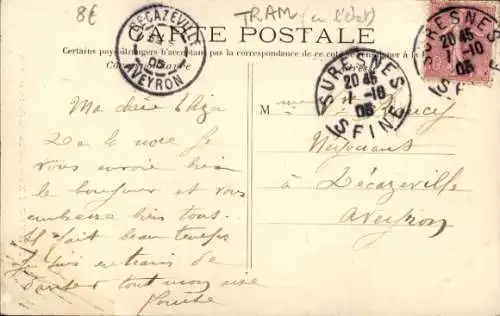 8€
TRAM (en l'état)
CARTE POSTALE
Certains pays étrangers n'acceptent pas la correspondance de ce côté
DECAZEVILLE
05
AVEYRON
SURESNES
20 45
1-10
05
(SEINE)
SURESNES
20 45
1-10
05
(SEINE)
Ma chère Eliza
De la noce je
vous envoie bien
le bonjour et vous
embrasse bien tous.
Il fait beau temps
Je suis en train de
danser tout mon aise
Louise
M
Négociant
à Décazeville
Aveyron